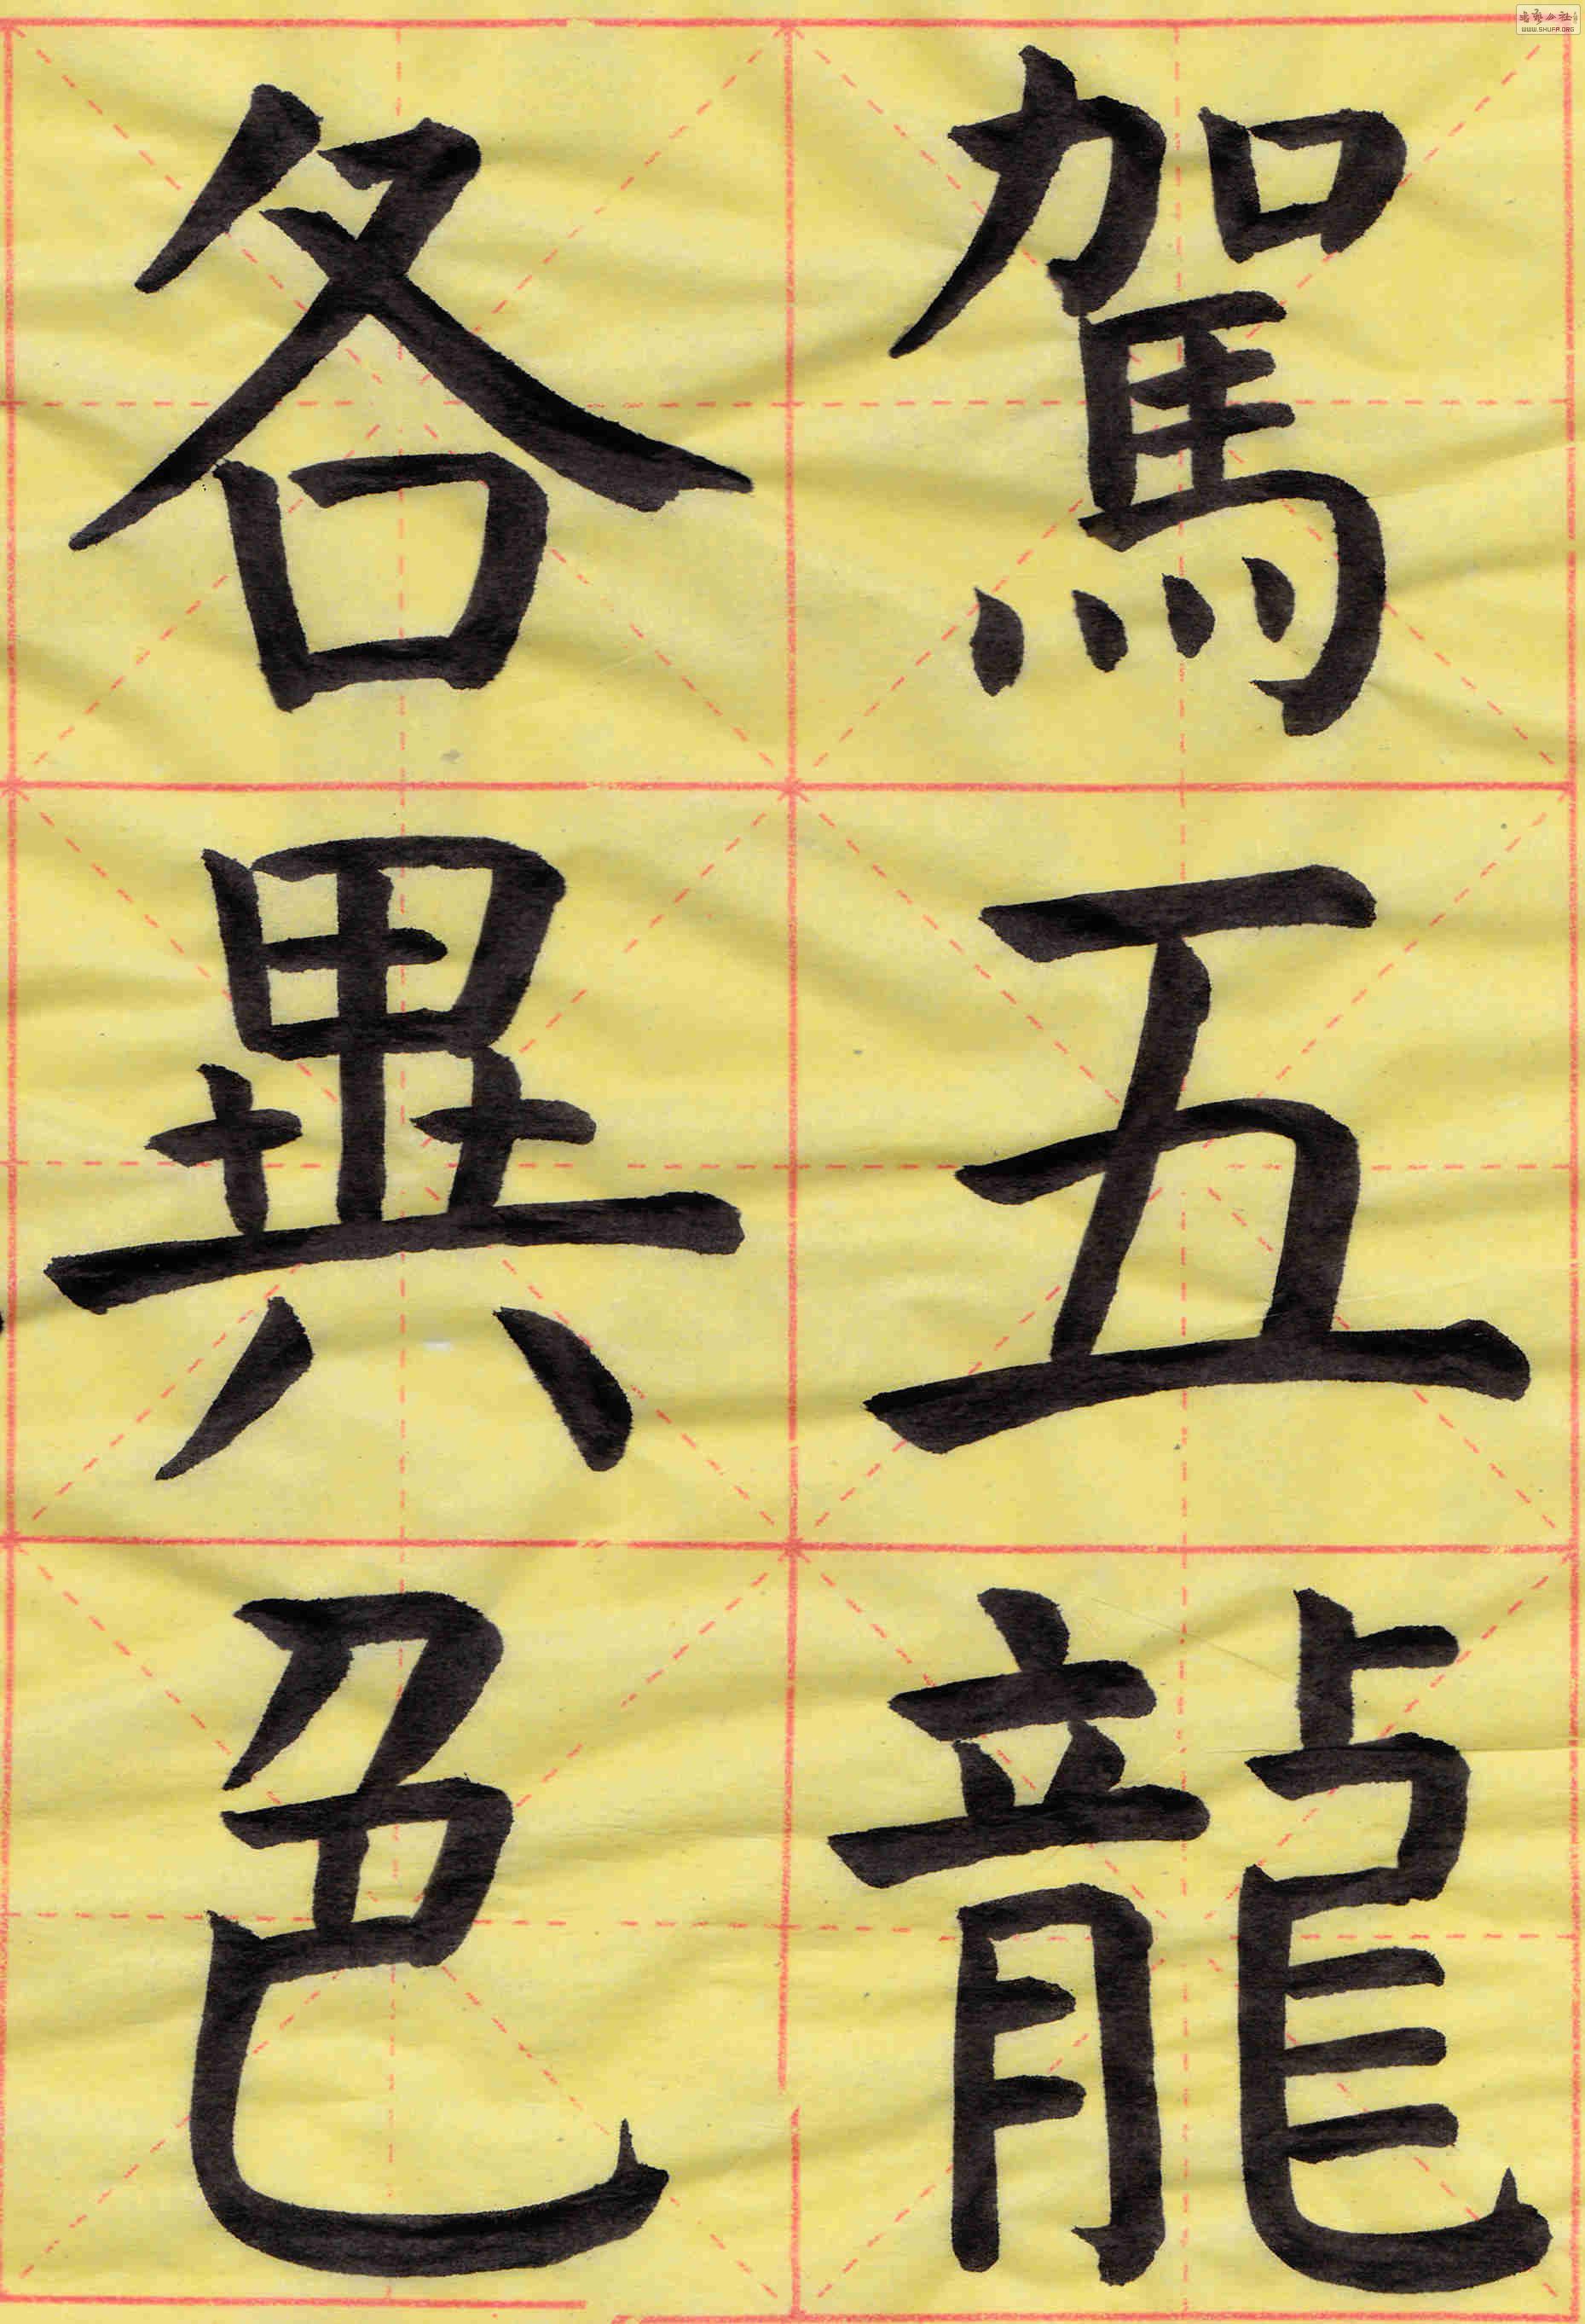 駕五龍
各異色
WWW.SHUFA.ORG